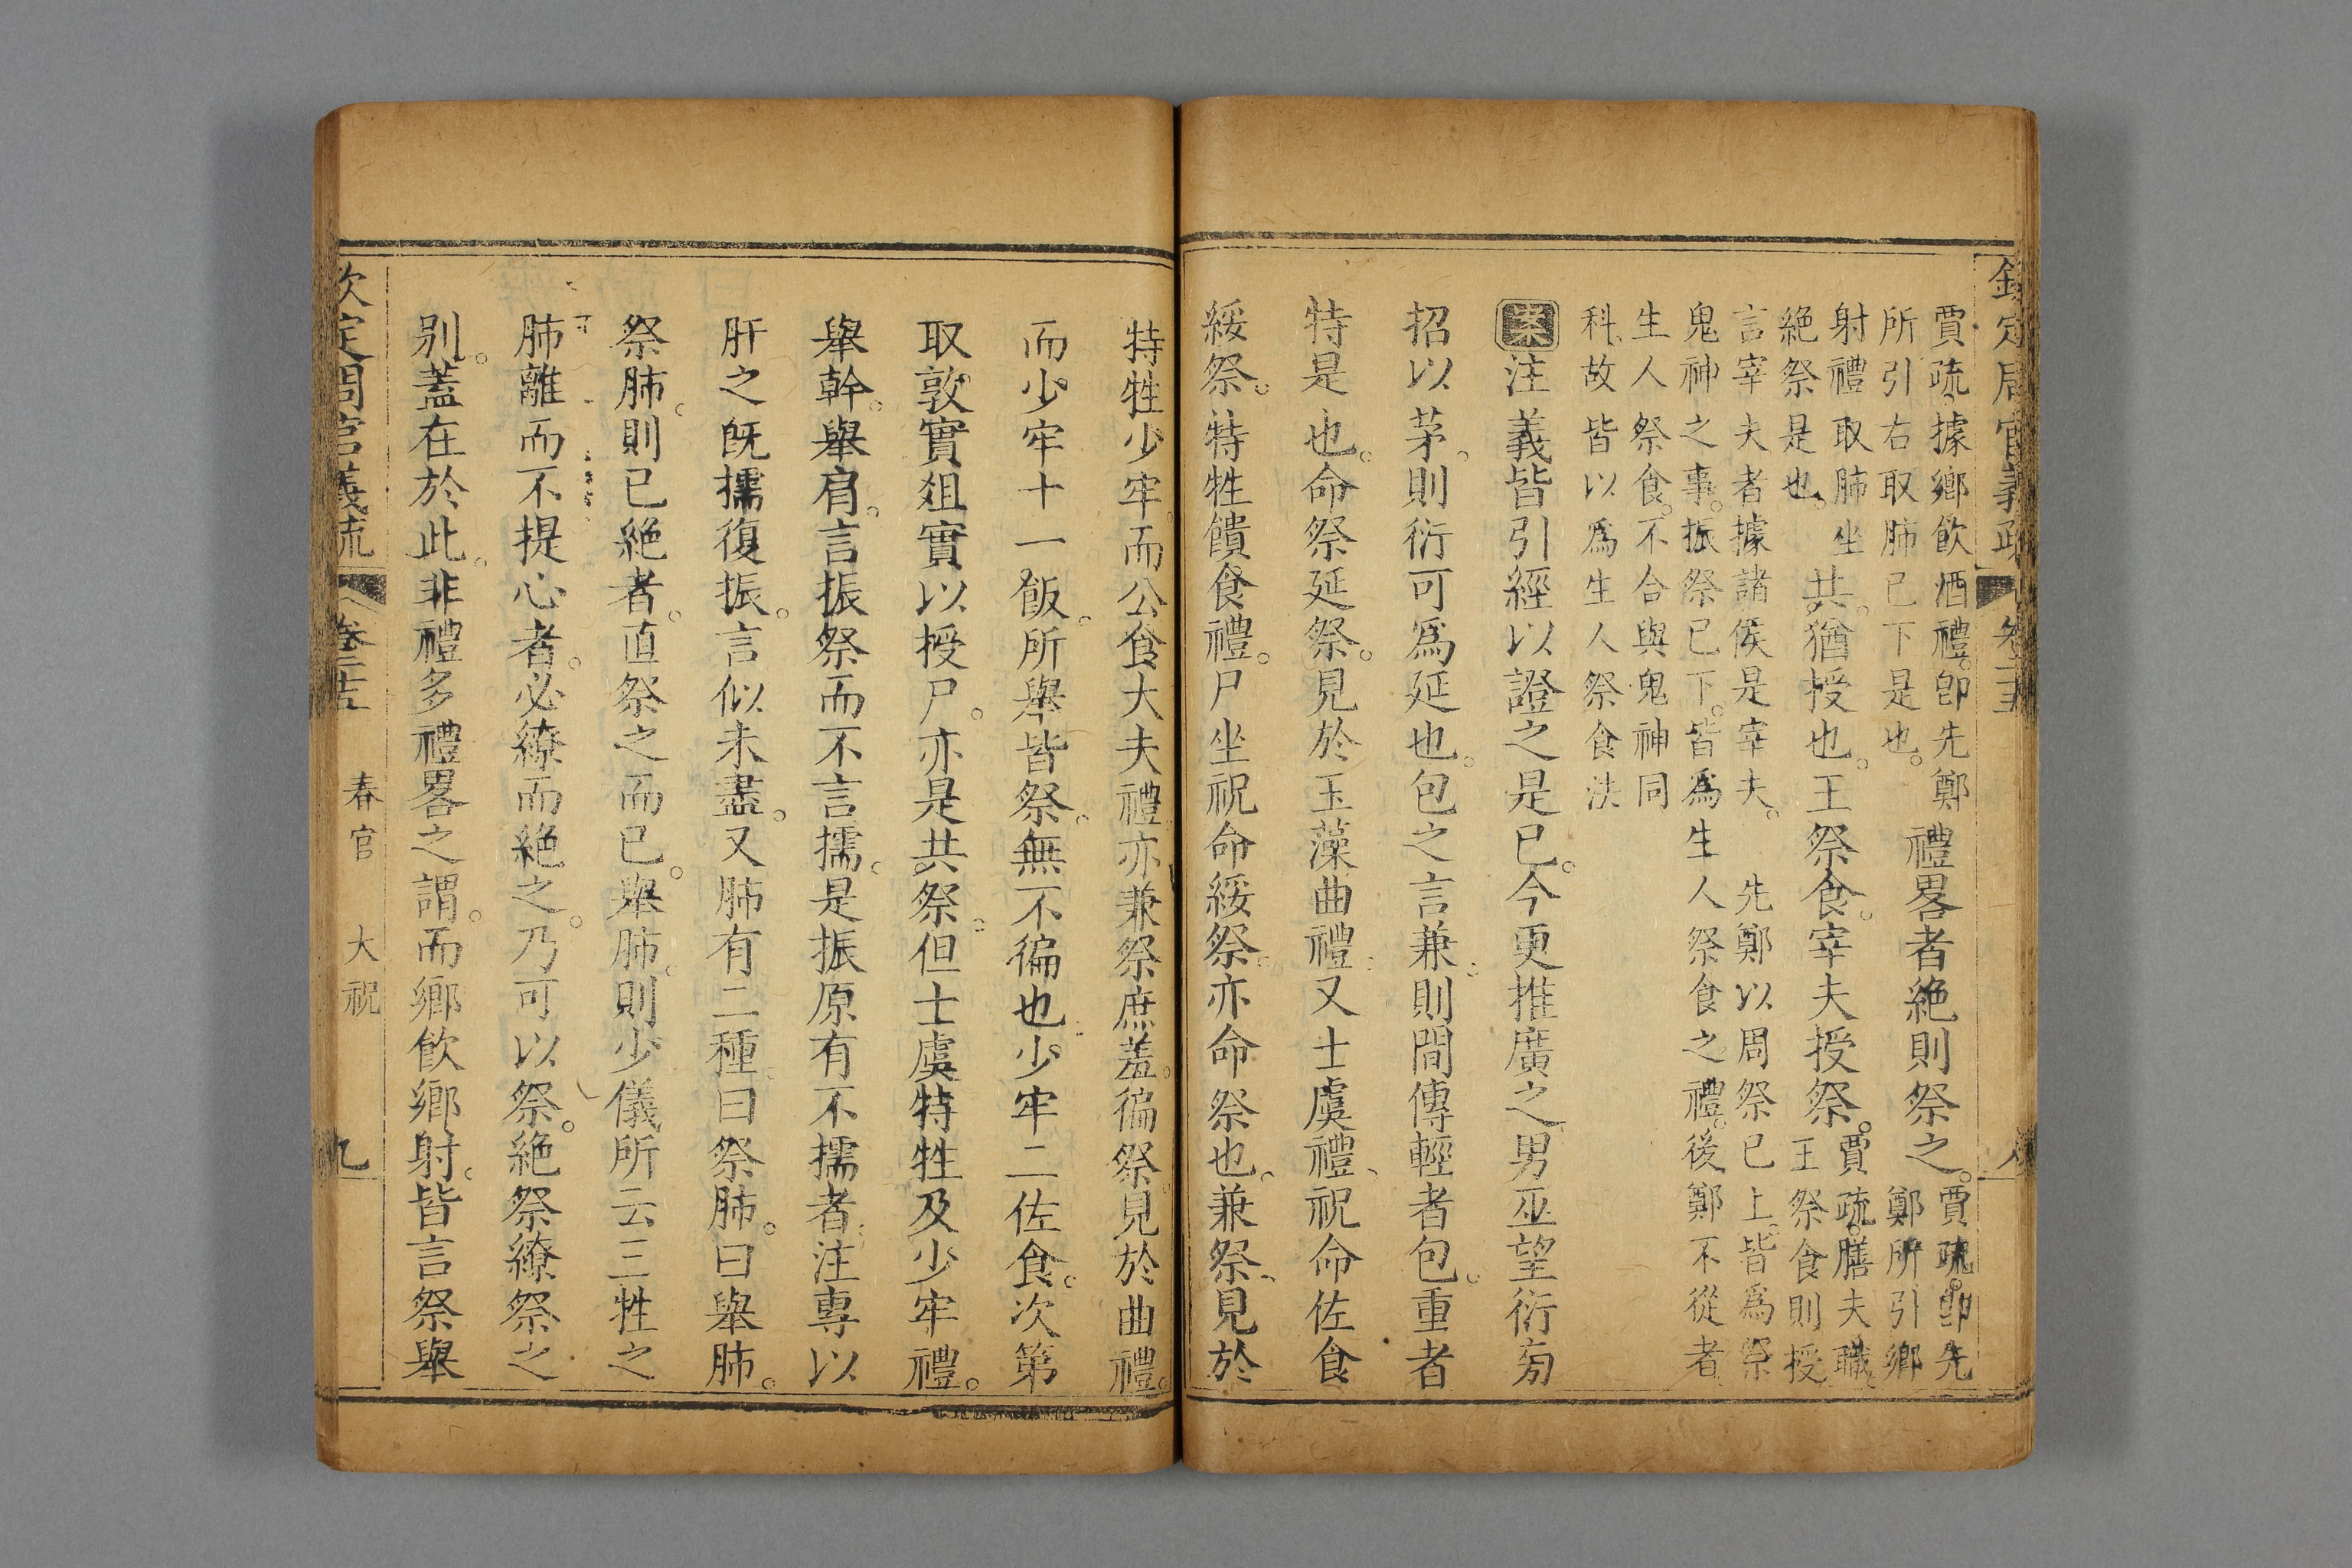 欽定周官義疏 卷二十五 八
賈疏據鄉飲酒禮。即先鄭
所引右取肺已下是也。
禮畧者絶則祭之。
賈疏。即先
鄭所引鄉
射禮取肺坐
絶祭是也。
共。猶授也。王祭食。宰夫授祭。
賈疏。膳夫職。
王祭食則授
言宰夫者據諸侯是宰夫。
先鄭以周祭已上。皆爲祭
鬼神之事。振祭已下。皆爲生人祭食之禮。後鄭不從者
生人祭食。不合與鬼神同
科。故皆以爲生人祭食法
案注義皆引經以證之是已。今更推廣之男巫望衍旁
招以茅。則衍可爲延也。包之言兼。則間傳輕者包。重者
特是也。命祭延祭。見於玉藻曲禮。又士虞禮、祝命佐食
綏祭。特牲饋食禮。尸坐祝命綏祭。亦命祭也。兼祭、見於
特牲少牢。而公食大夫禮亦兼祭庶羞。徧祭見於曲禮。
而少牢十一飯。所舉皆祭。無不徧也。少牢二佐食。次第
取敦實俎實以授尸。亦是共祭。但士虞特牲及少牢禮。
舉幹。舉肩。言振祭而不言擩。是振原有不擩者。注專以
肝之旣擩復振。言似未盡。又肺有二種。曰祭肺。曰舉肺。
祭肺。則已絶者。直祭之而已。舉肺。則少儀所云三牲之
肺離而不提心者。必繚而絶之。乃可以祭。絶祭繚祭之
别。蓋在於此。非禮多禮畧之謂。而鄉飲鄉射。皆言祭舉
欽定周官義疏 卷二十五 春官 大祝 九